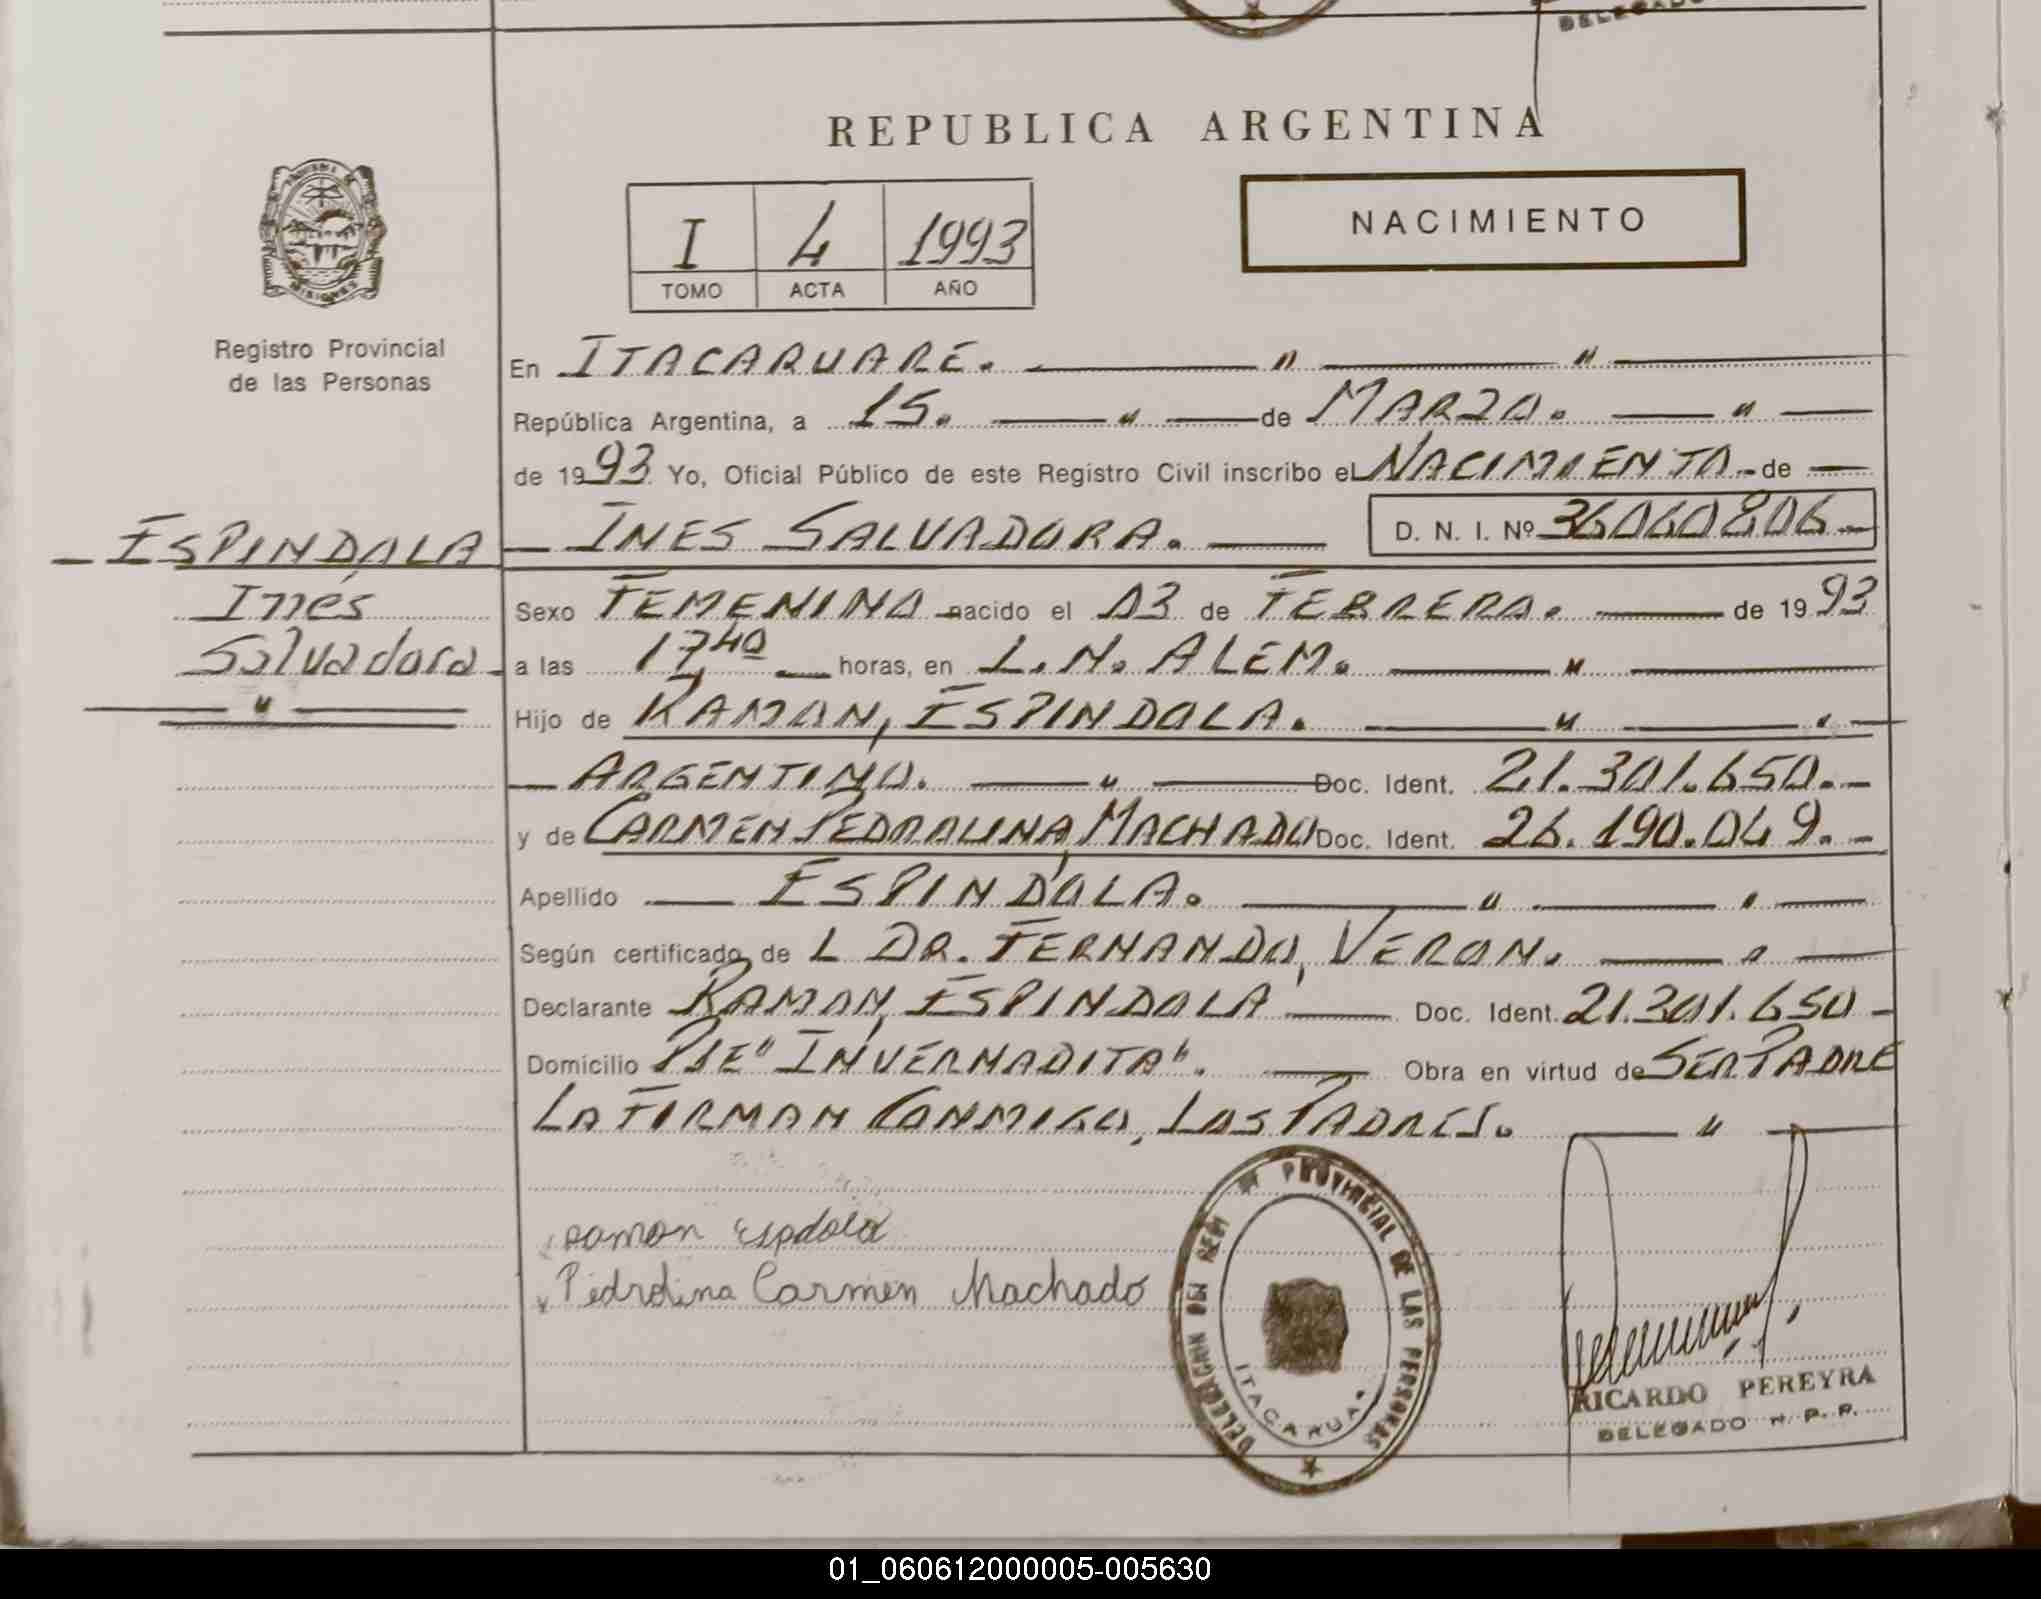 DELEGADO
REPUBLICA ARGENTINA
NACIMIENTO
I 4 1993
TOMO ACTA AÑO
MISIONES
Registro Provincial
de las Personas
En ITACARUARE. " "
República Argentina, a 15. " de MARZO. "
de 1993 Yo, Oficial Público de este Registro Civil inscribo el NACIMIENTO de
ESPINDOLA
Inés
Salvadora
"
INES SALVADORA. D. N. I. Nº 36060806
Sexo FEMENINO nacido el 03 de FEBRERO. de 1993
a las 17,40 horas, en L.N. ALEM. "
Hijo de RAMON, ESPINDOLA. " "
ARGENTINO. " Doc. Ident. 21.301.650.
y de CARMEN PEDROLINA, MACHADO Doc. Ident. 26.190.049.
Apellido ESPINDOLA. " "
Según certificado de L DR. FERNANDO, VERON. "
Declarante RAMON, ESPINDOLA Doc. Ident. 21.301.650
Domicilio PJE "INVERNADITA". Obra en virtud de SER PADRE
LA FIRMAN CONMIGO, LOS PADRES. "
Ramon Espdola
Pedrolina Carmen Machado
DELEGACION DEL REGI PROVINCIAL DE LAS PERSONAS
ITACARUA
RICARDO PEREYRA
DELEGADO R. P. P.
01_060612000005-005630